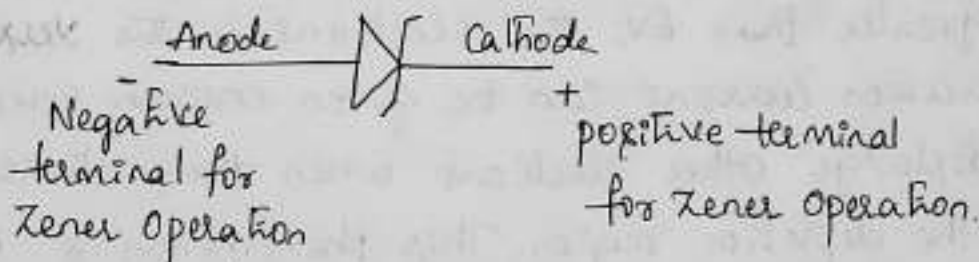 Anode Cathode
- +
Negative
terminal for
Zener Operation
positive terminal
for Zener Operation.